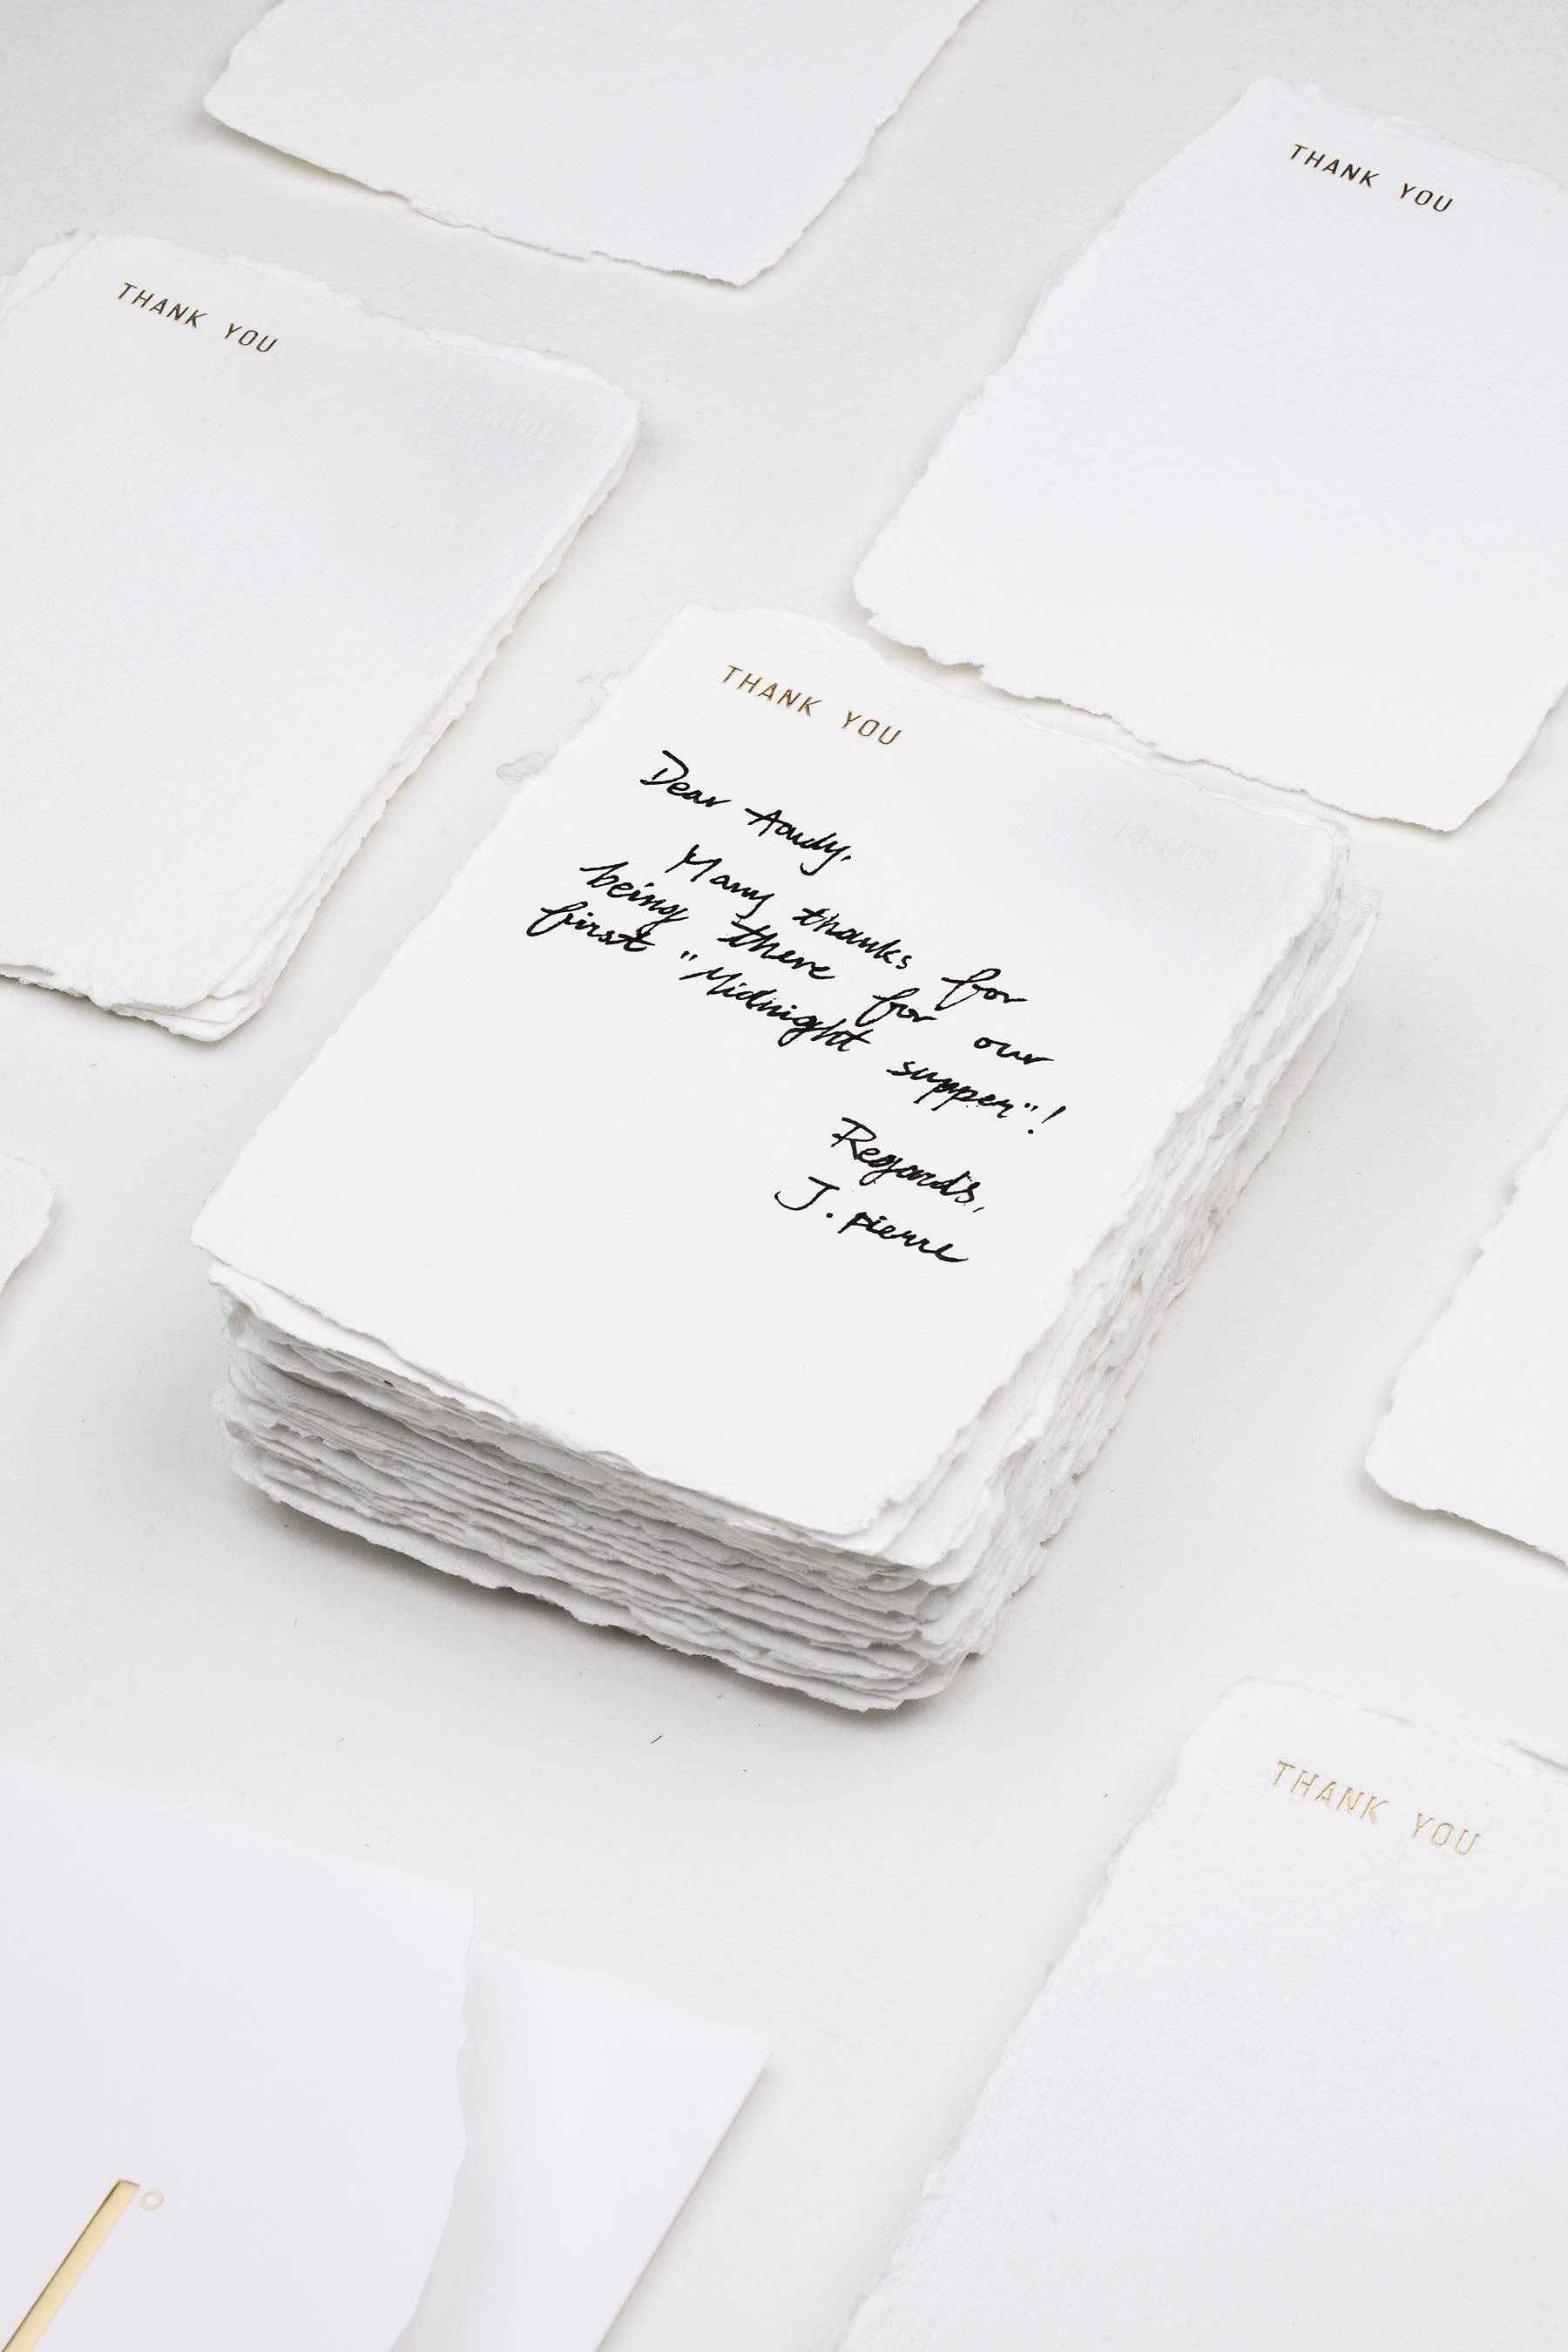 THANK YOU
THANK YOU
THANK YOU
Dear Aardy,
Many thanks for
being there for our
first "Midnight supper"!
Regards,
J. pierre
THANK YOU